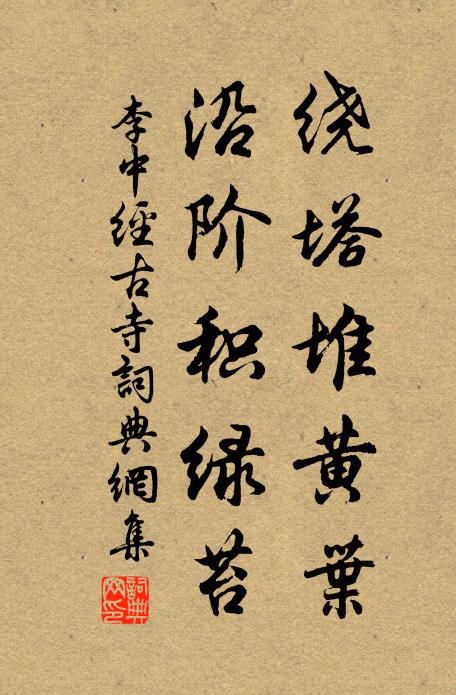 绕塔堆黄葉
沿阶积绿苔
李中經古寺詞典網集
詞典网印